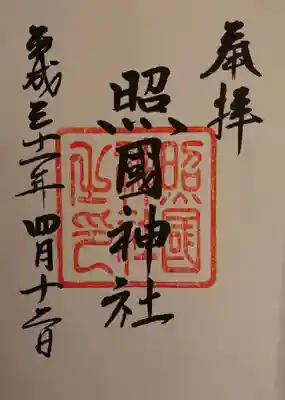 奉拝
照國神社
照國神社之印
平成三十一年四月十二日